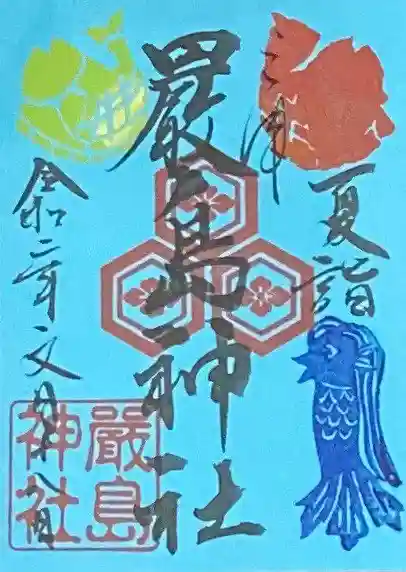 夏詣
嚴島神社
令和二年文月
嚴島
神社